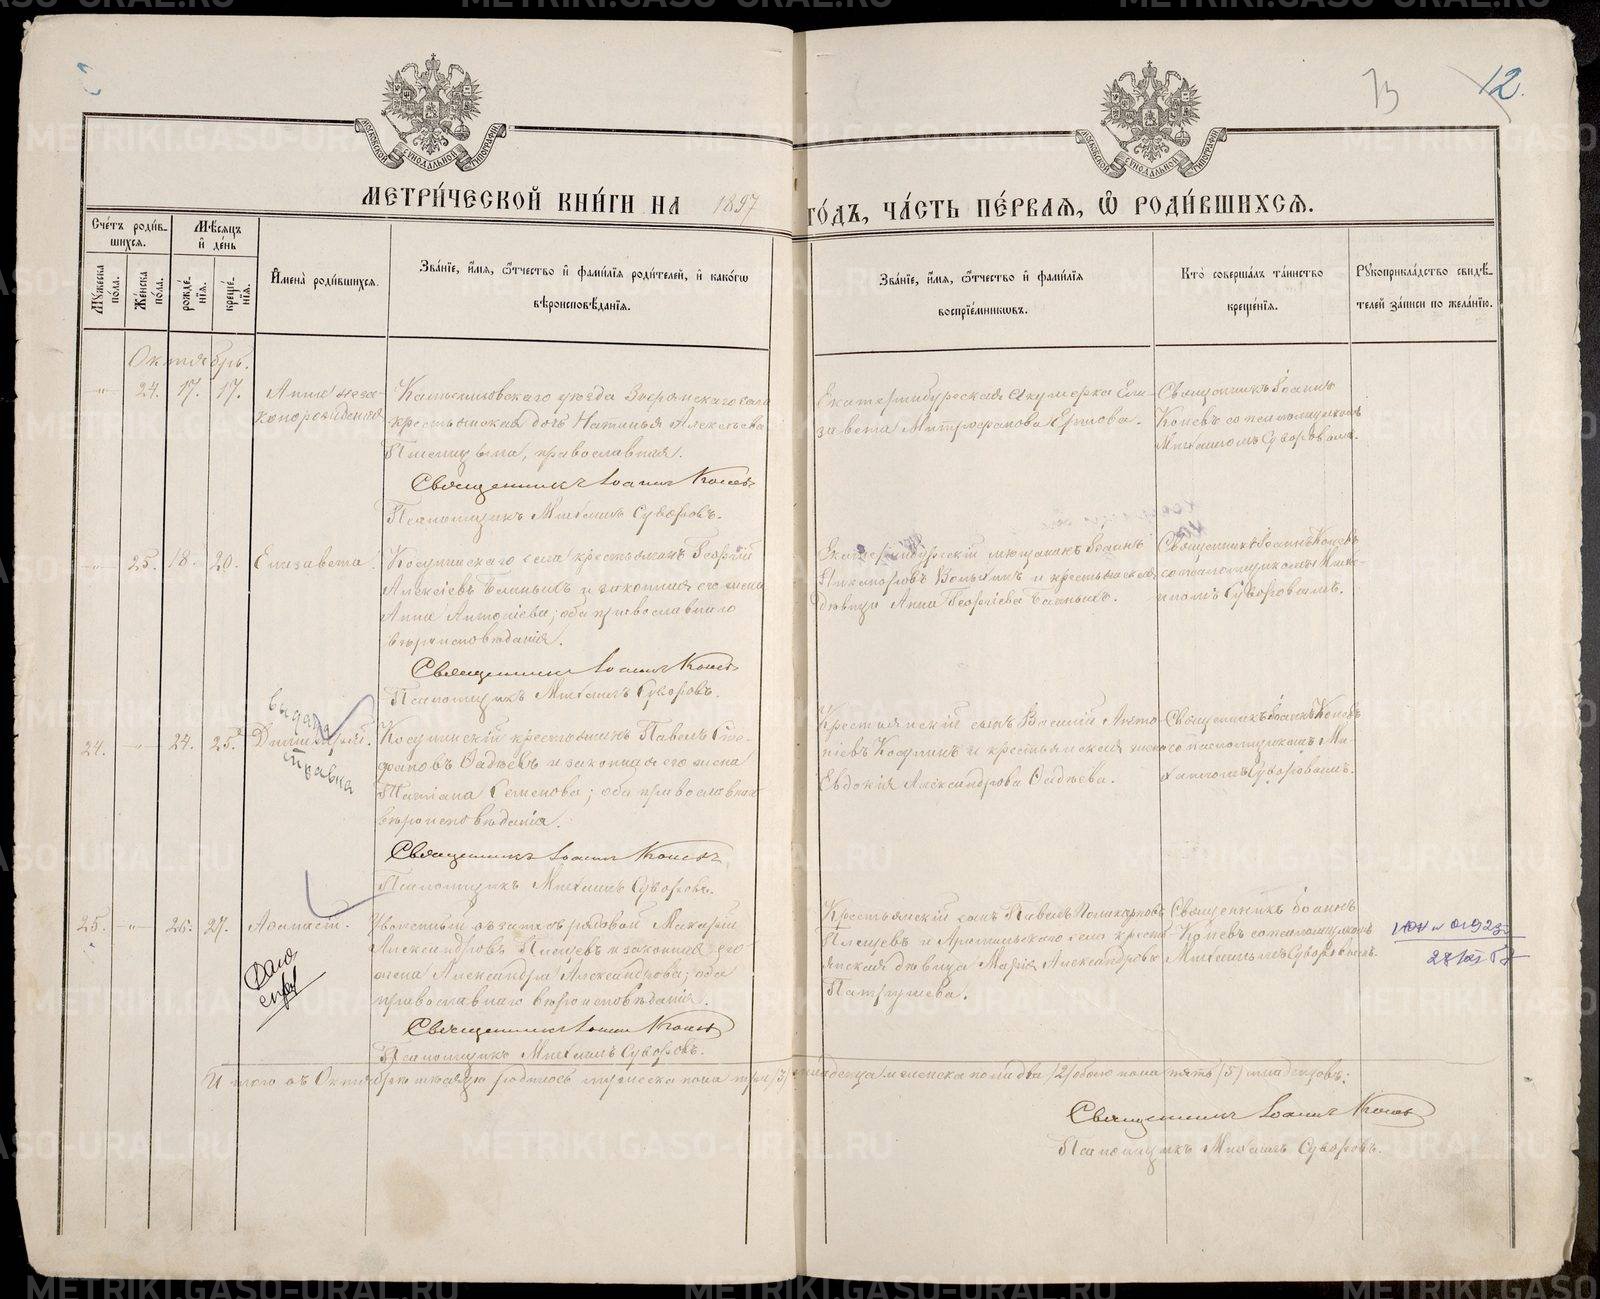 12.
МОСКОВСКОЙ СѴНОДАЛЬНОЙ ТИПОГРАФІИ
МОСКОВСКОЙ СѴНОДАЛЬНОЙ ТИПОГРАФІИ
МЕТРИ́ЧЕСКОЙ КНИ́ГИ НА 1897 ГО́ДЪ, ЧА́СТЬ ПЕ́РВАЯ, Ѽ РОДИ́ВШИХСЯ.
Сче́тъ роди́в-
шихся.
Мѣ́сяцъ
и҆ де́нь
Мꙋ́жеска по́ла.
Же́нска по́ла.
рожде́-
нїя.
креще́-
нїя.
И҆мена̀ роди́вшихся.
Зва́нїе, и҆́мя, ѻ҆́тчество и҆ фами́лїя роди́телей, и҆ како́гѡ
вѣроисповѣ́данїя.
Зва́нїе, и҆́мя, ѻ҆́тчество и҆ фами́лїя
воспрїе́мникѡвъ.
Кто̀ соверша́лъ та́инство
креще́нїя.
Рꙋкоприкла́дство свидѣ́-
телей за́писи по жела́нїю.
Октябрь.
24. 17. 17.
Анна неза-
конорожденная
Камышловскаго уѣзда
крестьянская дочь Наталья Алексѣева
Пшеницына, православная.
Священникъ Іоаннъ Коневъ
Псаломщикъ Михаилъ Суворовъ.
Екатеринбургская акушерка Ели-
завета Митрофанова Ершова.
Священникъ Іоаннъ
Коневъ съ псаломщикомъ
Михаиломъ Суворовымъ.
25. 18. 20.
Елизавета.
Косулинскаго села крестьянинъ Георгій
Алексѣевъ Бѣлыхъ и законная его жена
Анна Антоніева; оба православнаго
вѣроисповѣданія.
Священникъ Іоаннъ Коневъ
Псаломщикъ Михаилъ Суворовъ.
Екатеринбургскій мѣщанинъ Іоаннъ
Никаноровъ и крестьянская
дѣвица Анна Георгіева
Священникъ Іоаннъ Коневъ
съ псаломщикомъ Миха-
иломъ Суворовымъ.
24. 24. 25.
Димитрій.
выдана
справка
Косулинскій крестьянинъ Павелъ Сте-
фановъ Фадѣевъ и законная его жена
Татіана Семенова; оба православнаго
вѣроисповѣданія.
Священникъ Іоаннъ Коневъ
Псаломщикъ Михаилъ Суворовъ.
Крестьянскій сынъ Василій Анто-
ніевъ Косулинъ и крестьянская жена
Евдокія Александрова Фадѣева.
Священникъ Іоаннъ Коневъ
съ псаломщикомъ Ми-
хаиломъ Суворовымъ.
25. 26. 27.
Аѳанасій.
Дана
спр
Уволенный въ запасъ рядовой Макарій
Александровъ Плещевъ и законная его
жена Александра Александрова; оба
православнаго вѣроисповѣданія.
Священникъ Іоаннъ Коневъ
Псаломщикъ Михаилъ Суворовъ.
Крестьянскій сынъ Павелъ Поликарповъ
Плещевъ и Арамильскаго села кресть-
янская дѣвица Марія Александрова
Патрушева.
Священникъ Іоаннъ
Коневъ съ псаломщикомъ
Михаиломъ Суворовымъ.
Итого въ Октябрѣ мѣсяцѣ родилось мужеска пола три (3) младенца и женска пола два (2) обоего пола пять (5) младенцовъ.
Священникъ Іоаннъ Коневъ
Псаломщикъ Михаилъ Суворовъ.
METRIKI.GASO-URAL.RU